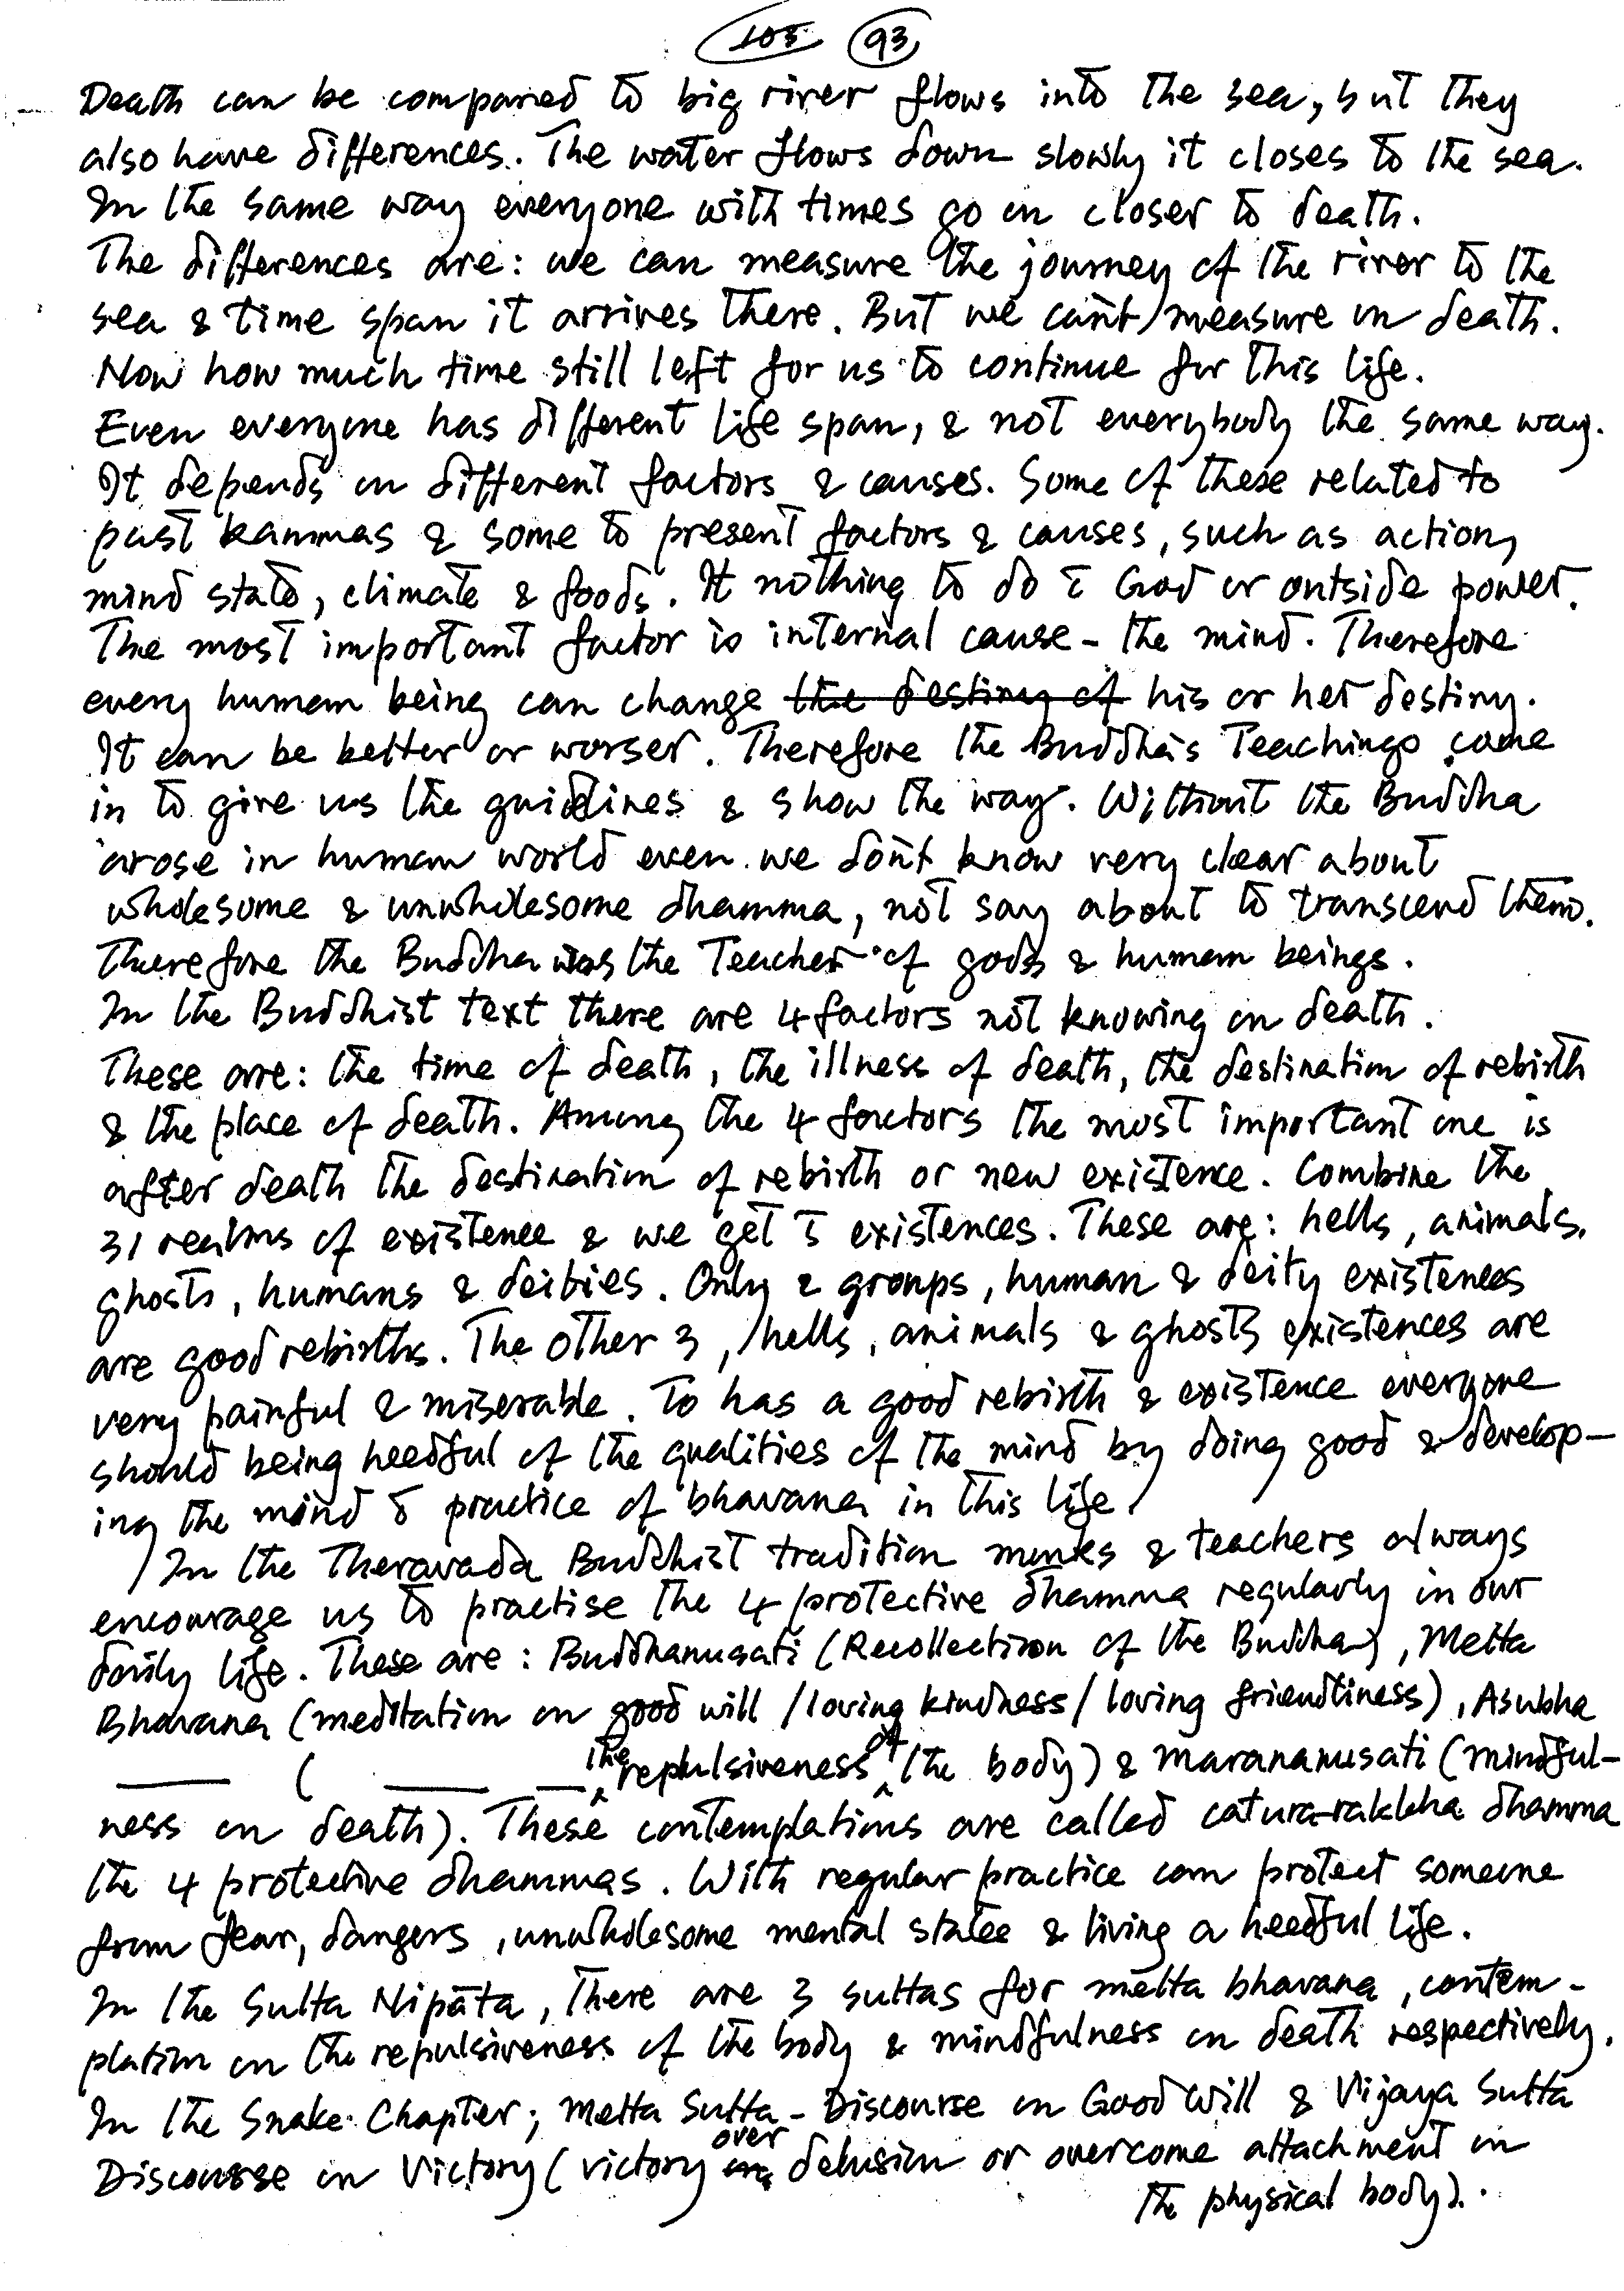 105 93
Death can be compared to big river flows into the sea, but they
also have differences. The water flows down slowly it closes to the sea.
In the same way everyone with times go on closer to death.
The differences are: we can measure the journey of the river to the
sea & time span it arrives there. But we can't measure on death.
Now how much time still left for us to continue for this life.
Even everyone has different life span, & not everybody the same way.
It depends on different factors & causes. Some of these related to
past kammas & some to present factors & causes, such as action,
mind state, climate & foods. It nothing to do c̄ God or outside power.
The most important factor is internal cause - the mind. Therefore
every human being can change the destiny of his or her destiny.
It can be better or worser. Therefore the Buddha's Teachings come
in to give us the guidlines & show the way. Without the Buddha
arose in human world even we don't know very clear about
wholesome & unwholesome dhamma, not say about to transcend them.
Therefore the Buddha was the Teacher of gods & human beings.
In the Buddhist text there are 4 factors not knowing on death.
These are: the time of death, the illness of death, the destination of rebirth
& the place of death. Among the 4 factors the most important one is
after death the destination of rebirth or new existence. Combine the
31 realms of existence & we get 5 existences. These are: hells, animals,
ghosts, humans & deities. Only 2 groups, human & deity existences
are good rebirths. The other 3, hells, animals & ghosts existences are
very painful & miserable. To has a good rebirth & existence everyone
should being heedful of the qualities of the mind by doing good & develop-
ing the mind c̄ practice of bhavana in this life.
In the Theravada Buddhist tradition monks & teachers always
encourage us to practise the 4 protective dhamma regularly in our
daily life. These are: Buddhanusati (Recollection of the Buddha), Metta
Bhavana (meditation on good will / loving kindness / loving friendliness), Asubha
—— ( —— — the repulsiveness of the body) & maranamusati (mindful-
ness on death). These contemplations are called catura-rakkha dhamma
the 4 protective dhammas. With regular practice can protect someone
from fear, dangers, unwholesome mental states & living a heedful life.
In the Sutta Nipāta, there are 3 suttas for metta bhavana, contem-
plation on the repulsiveness of the body & mindfulness on death respectively.
In the Snake Chapter; Metta Sutta - Discourse on Good Will & Vijaya Sutta
Discourse on Victory (victory over delusion or overcome attachment on
the physical body).